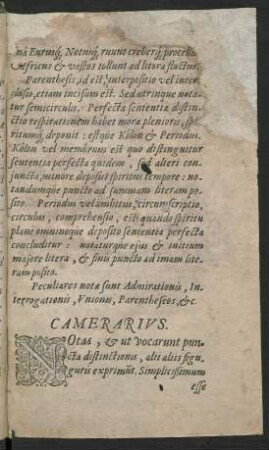 nà Eurusq́; Notusq́; ruunt creberq́; procellis
Africus & vastos tollunt ad litora fluctus.
Parenthesis, id est, interpositio vel inter
clusio, etiam incisum est. Sed utrinque nota
tur semicirculo. Perfectæ sententiæ distin
ctio respirationem habet moræ plenioris, spi
ritumq́; deponit: estq́ue Kôlon & Periodus.
Kôlon vel membrum est quo distinguitur
sententia perfecta quidem, sed alteri con
juncta, minore deposito spiritus tempore: no
tandumq́ue puncto ad summam literam po
sito. Periodus vel ambitus, circumscriptio,
circulus, comprehensio, est quando spiritu
plane omninoque deposito sententia perfecta
concluditur: notaturque ejus & initium
majore litera, & finis puncto ad imam lite
ram posito.
Peculiares notæ sunt Admirationis, In
terrogationis, Vnionis, Parentheseos, &c.
CAMERARIVS.
NOtas, & ut vocarunt pun
cta distinctionis, alii aliis figu
guris exprimūt. Simplicissimum
esse